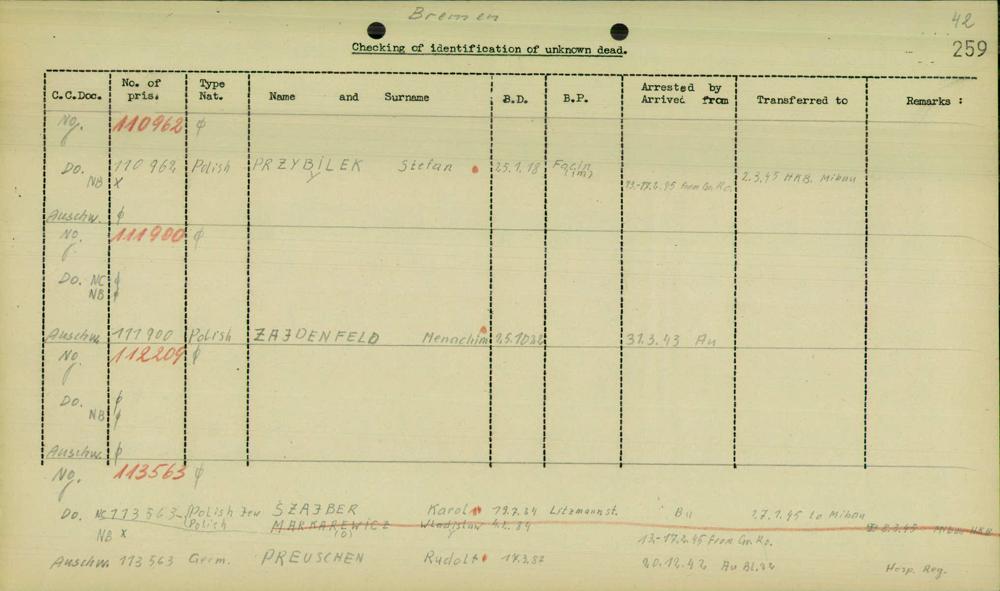 Bremen
42
259
Checking of identification of unknown dead.
C.C.Doc. No. of pris. Type Nat. Name and Surname B.D. B.P. Arrested by Arrived from Transferred to Remarks :
Ng. 110962 φ
Do. 110 962 Polish PRZYBILEK Stefan 25.1.18
y
NB x 13.-17.2.45 from Gr. Ro. 2.3.45 HKB. Mibau
Auschw. φ
Ng. 111900 φ
Do. NC φ
NB φ
Auschw. 111900 Polish ZAJDENFELD Menachim 31.3.43 Au
Ng. 112209 φ
Do. φ
NB φ
Auschw. φ
Ng. 113563 φ
Do. NC 113563 Polish Jew SZAJBER Karol 19.7.24 Litzmannst. Bu 27.1.45 to Mibau
Polish MARKAREWICZ Wladislaw
(o) y
NB x 13.-17.2.45 from Gr. Ro. Mibau HKB
Auschw. 113563 Germ. PREUSCHEN Rudolf 20.12.42 Au Bl.22 Hosp. Reg.